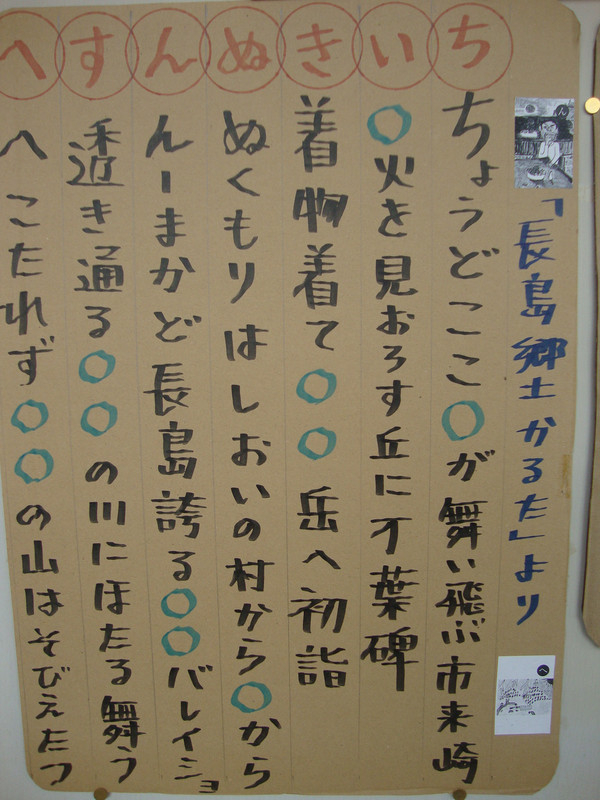 「長島郷土かるた」より
ち
ちょうどここ〇が舞い飛ぶ市来崎
い
〇火を見おろす丘に不葉碑
き
着物着て〇〇岳へ初詣
ぬ
ぬくもりはしおいの村から〇から
ん
んーまかど長島誇る〇〇バレイショ
す
透き通る〇〇の川にほたる舞う
へ
へこたれず〇〇の山はそびえたつ
へ